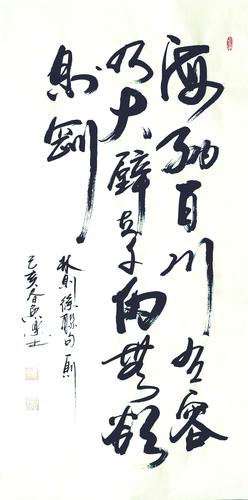 海納百川有容
乃大壁立千仞無欲
則剛
林則徐聯句一則
己亥春